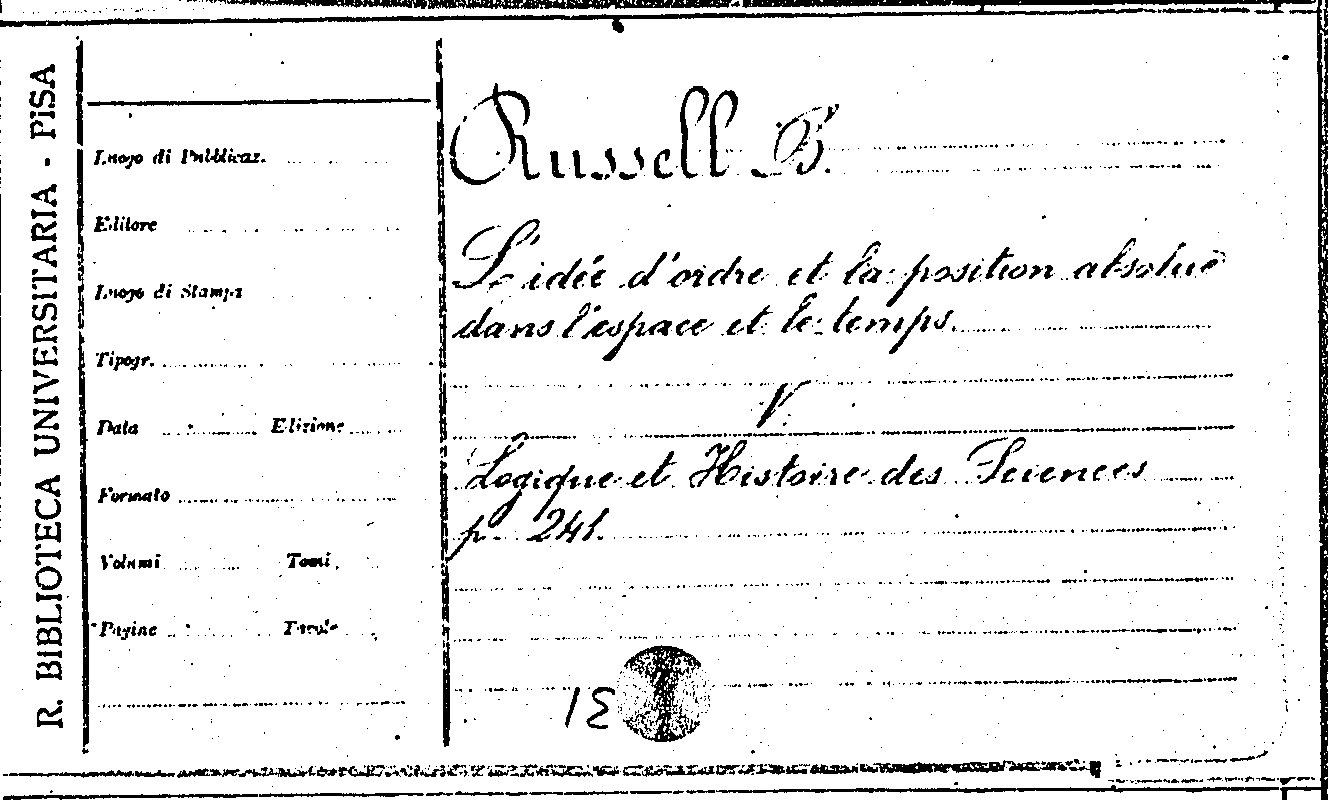 R. BIBLIOTECA UNIVERSITARIA - PISA
Luogo di Pubblicaz.
Editore
Luogo di Stampa
Tipogr.
Data Edizione
Formato
Volumi Tomi
Pagine Tavole
Russell B.
L'idée d'ordre et la position absolue
dans l'espace et le temps.
V.
Logique et Histoire des Sciences
p. 241.